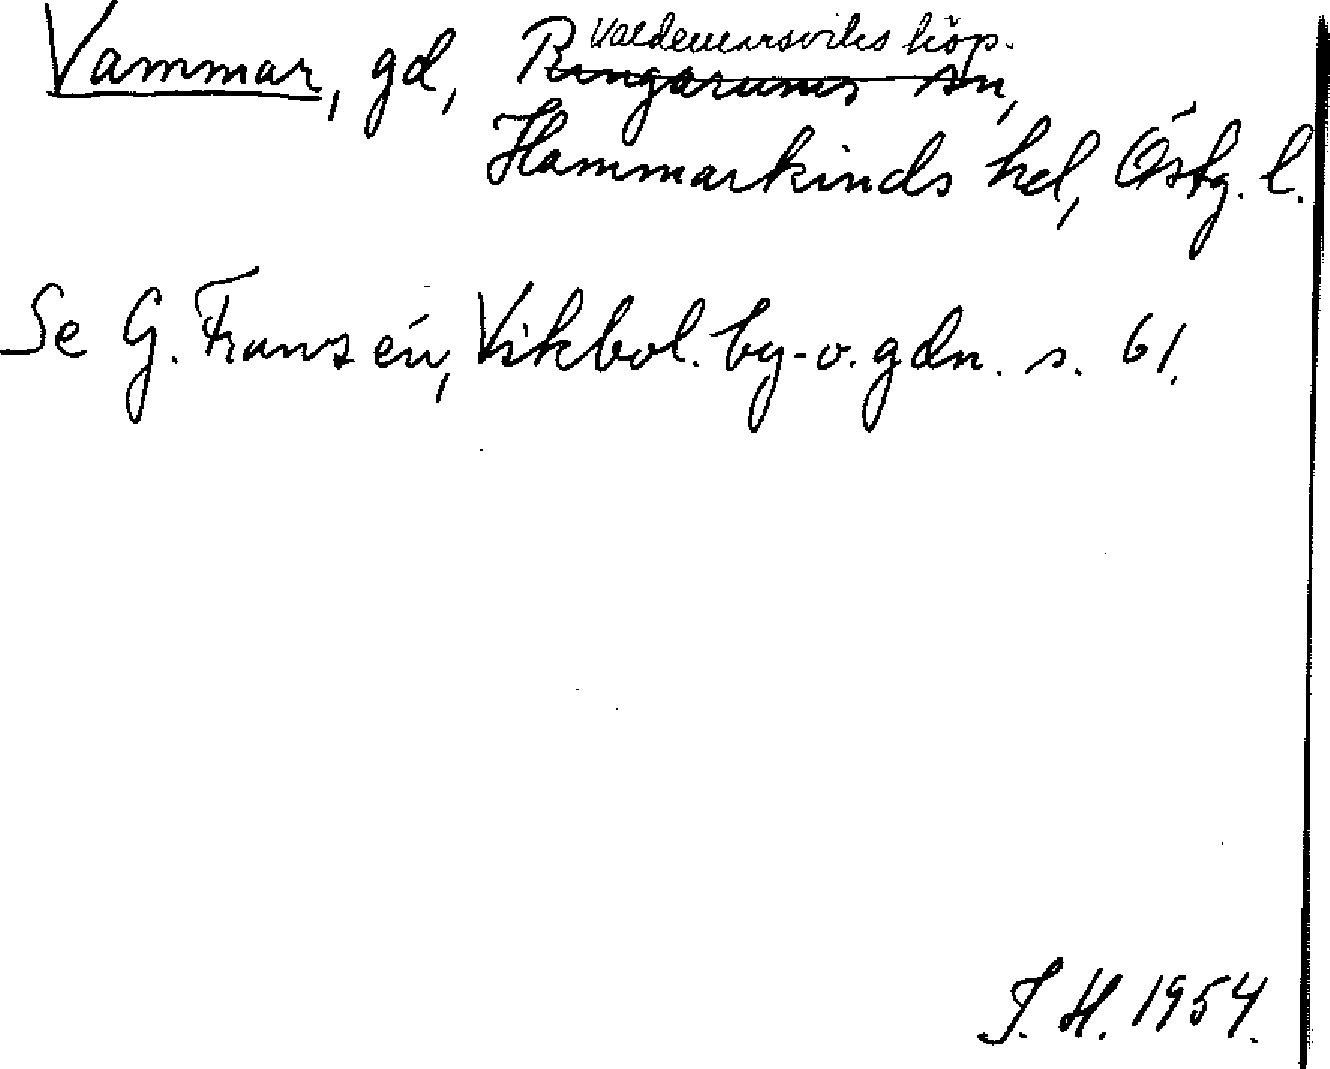 Valdemarsviks köp.
Vammar, gd, Ringarums sn,
Hammarkinds hd, Östg. l.
Se G. Franzén, Vikbol. by- o. gdn. s. 61.
J. H. 1954.